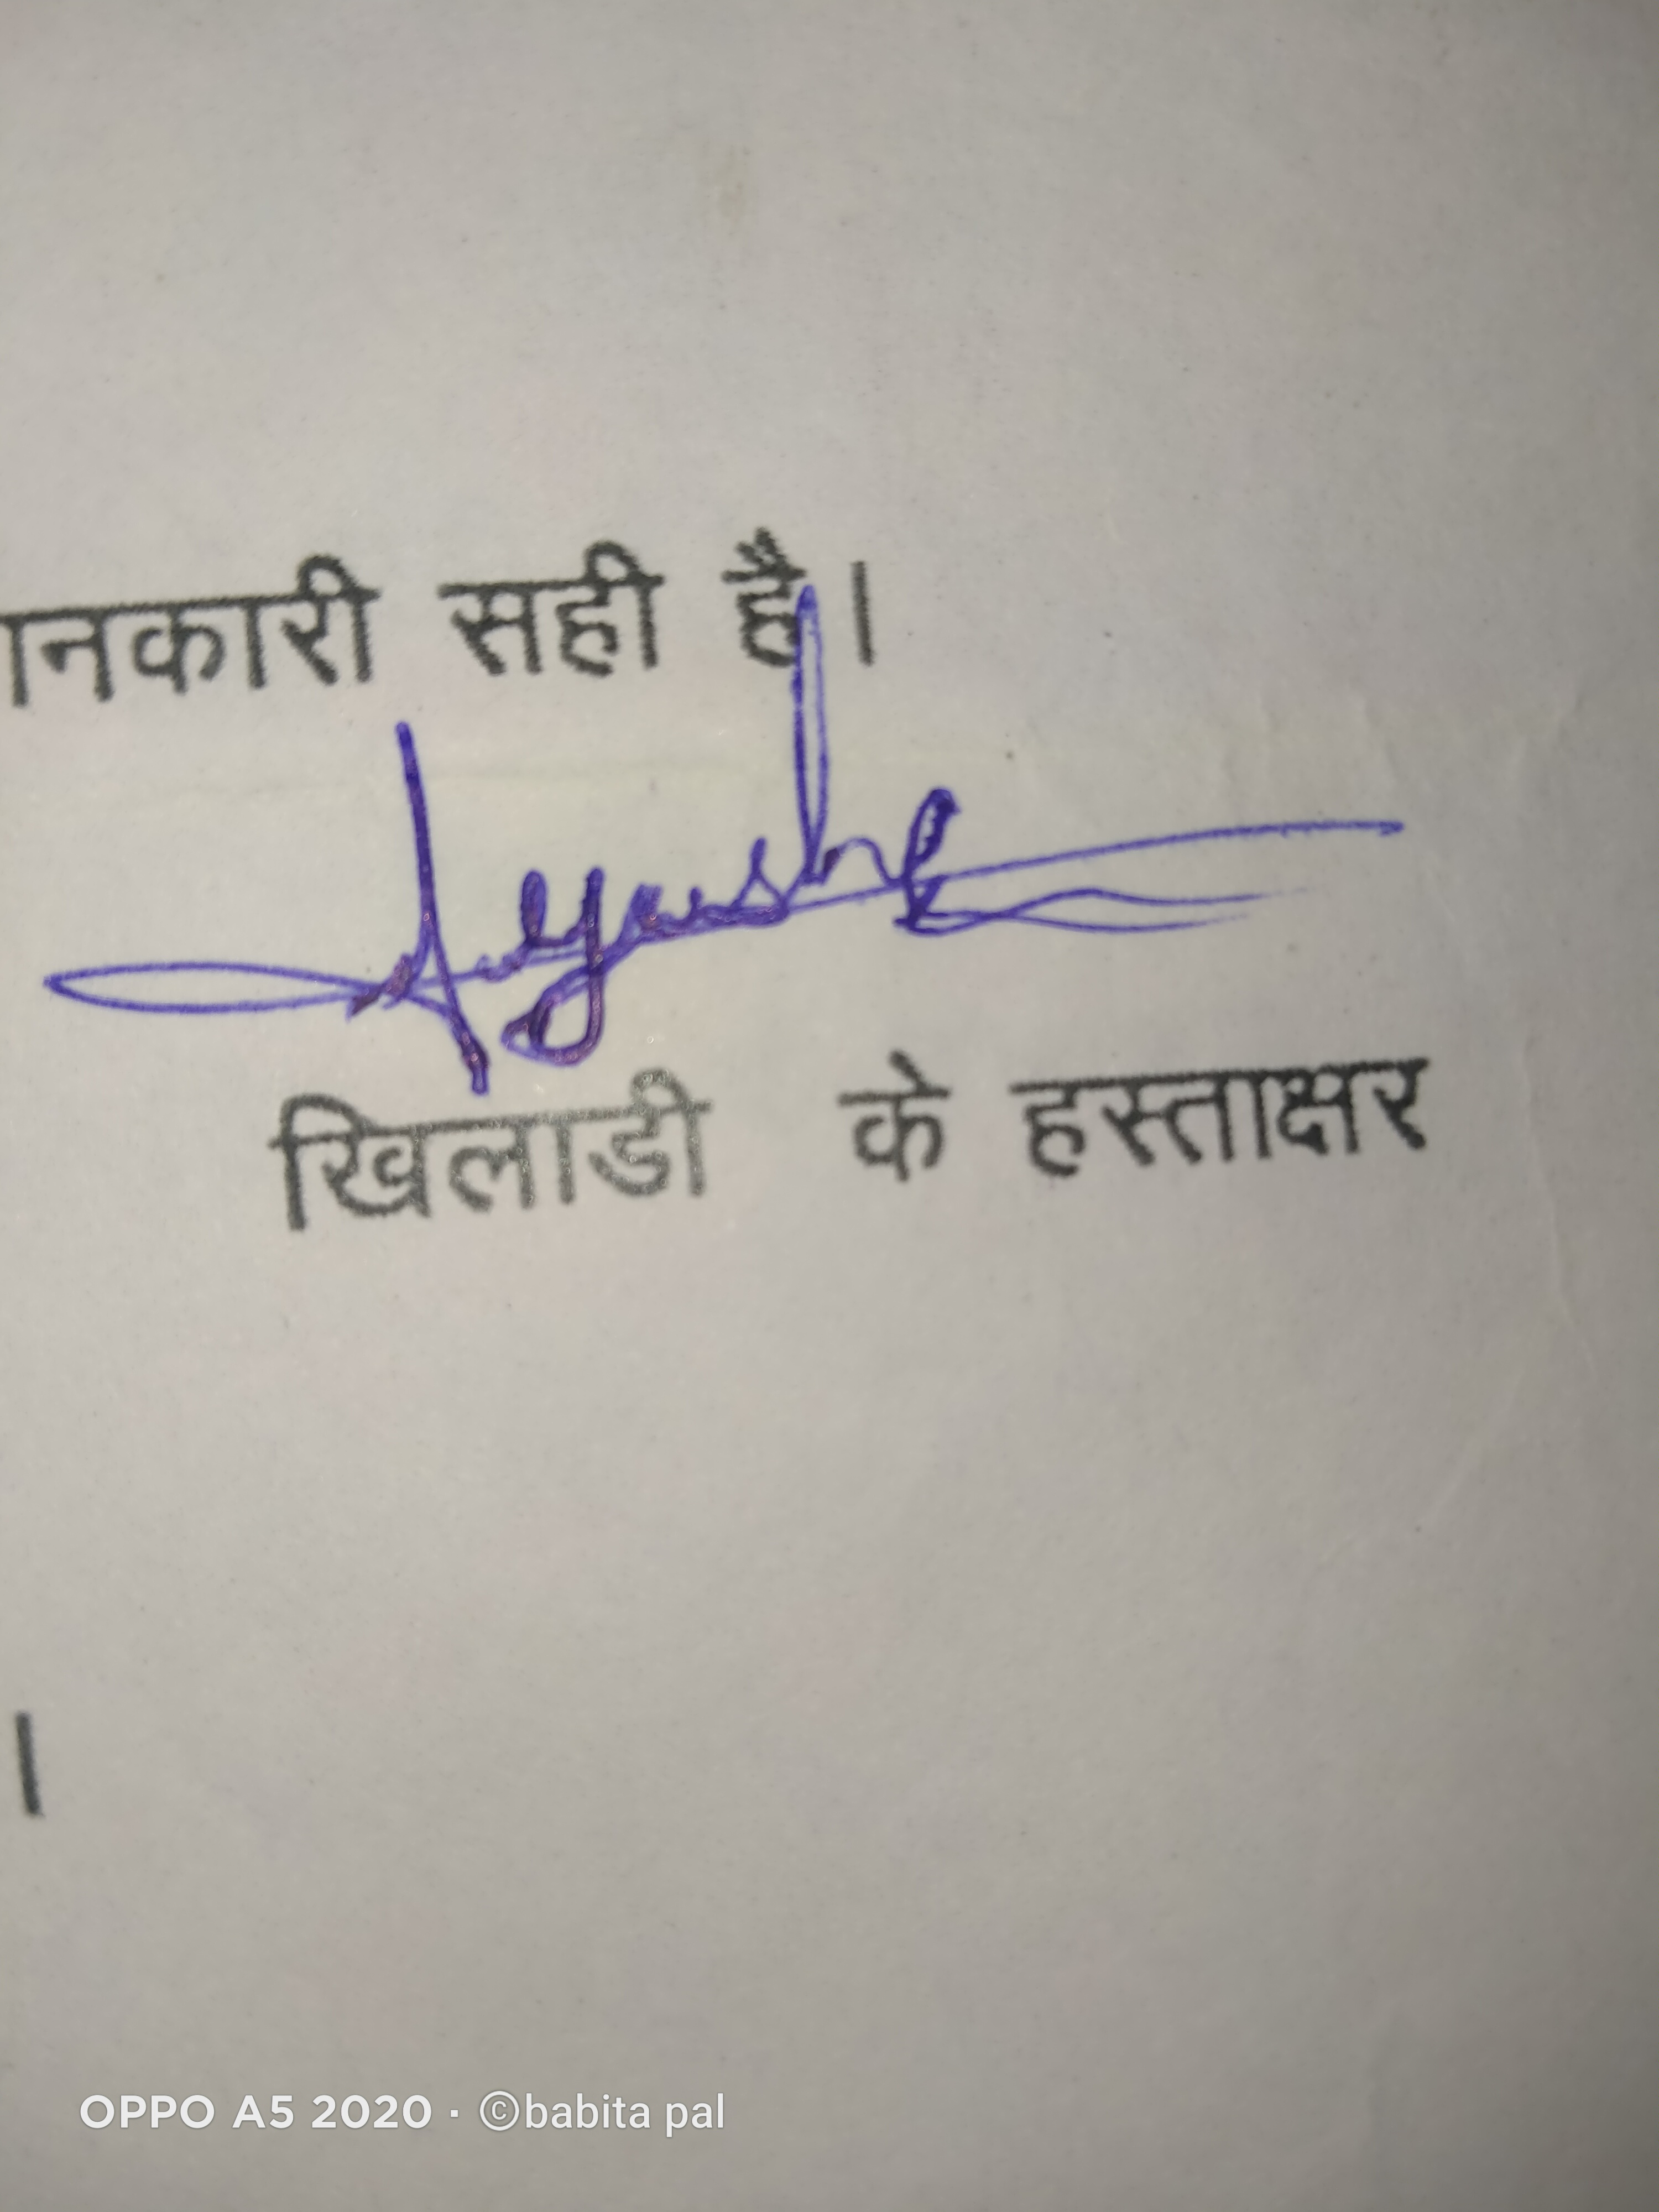 ानकारी सही है।
खिलाडी के हस्ताक्षर
।
OPPO A5 2020 · ©babita pal